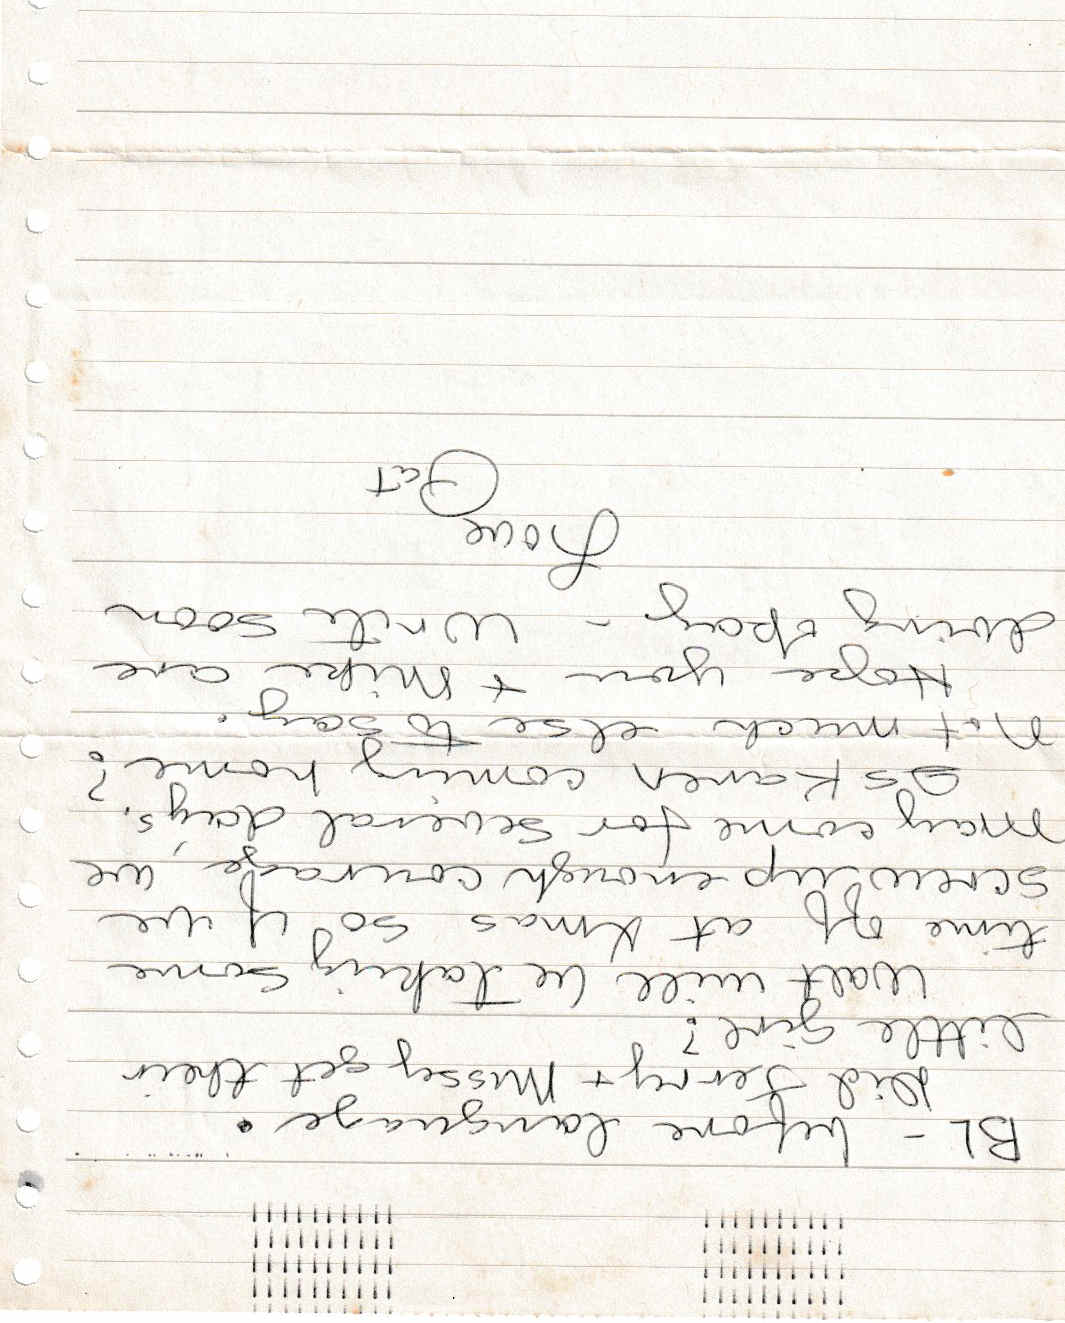 BL - before language.
Did Jerry + Missy get their
little girl?
Walt will be taking some
time off at Xmas so if we
screw up enough courage, we
may come for several days.
Is Karen coming home?
Not much else to say.
Hope you + Mike are
doing okay - Write soon
Love
Pat